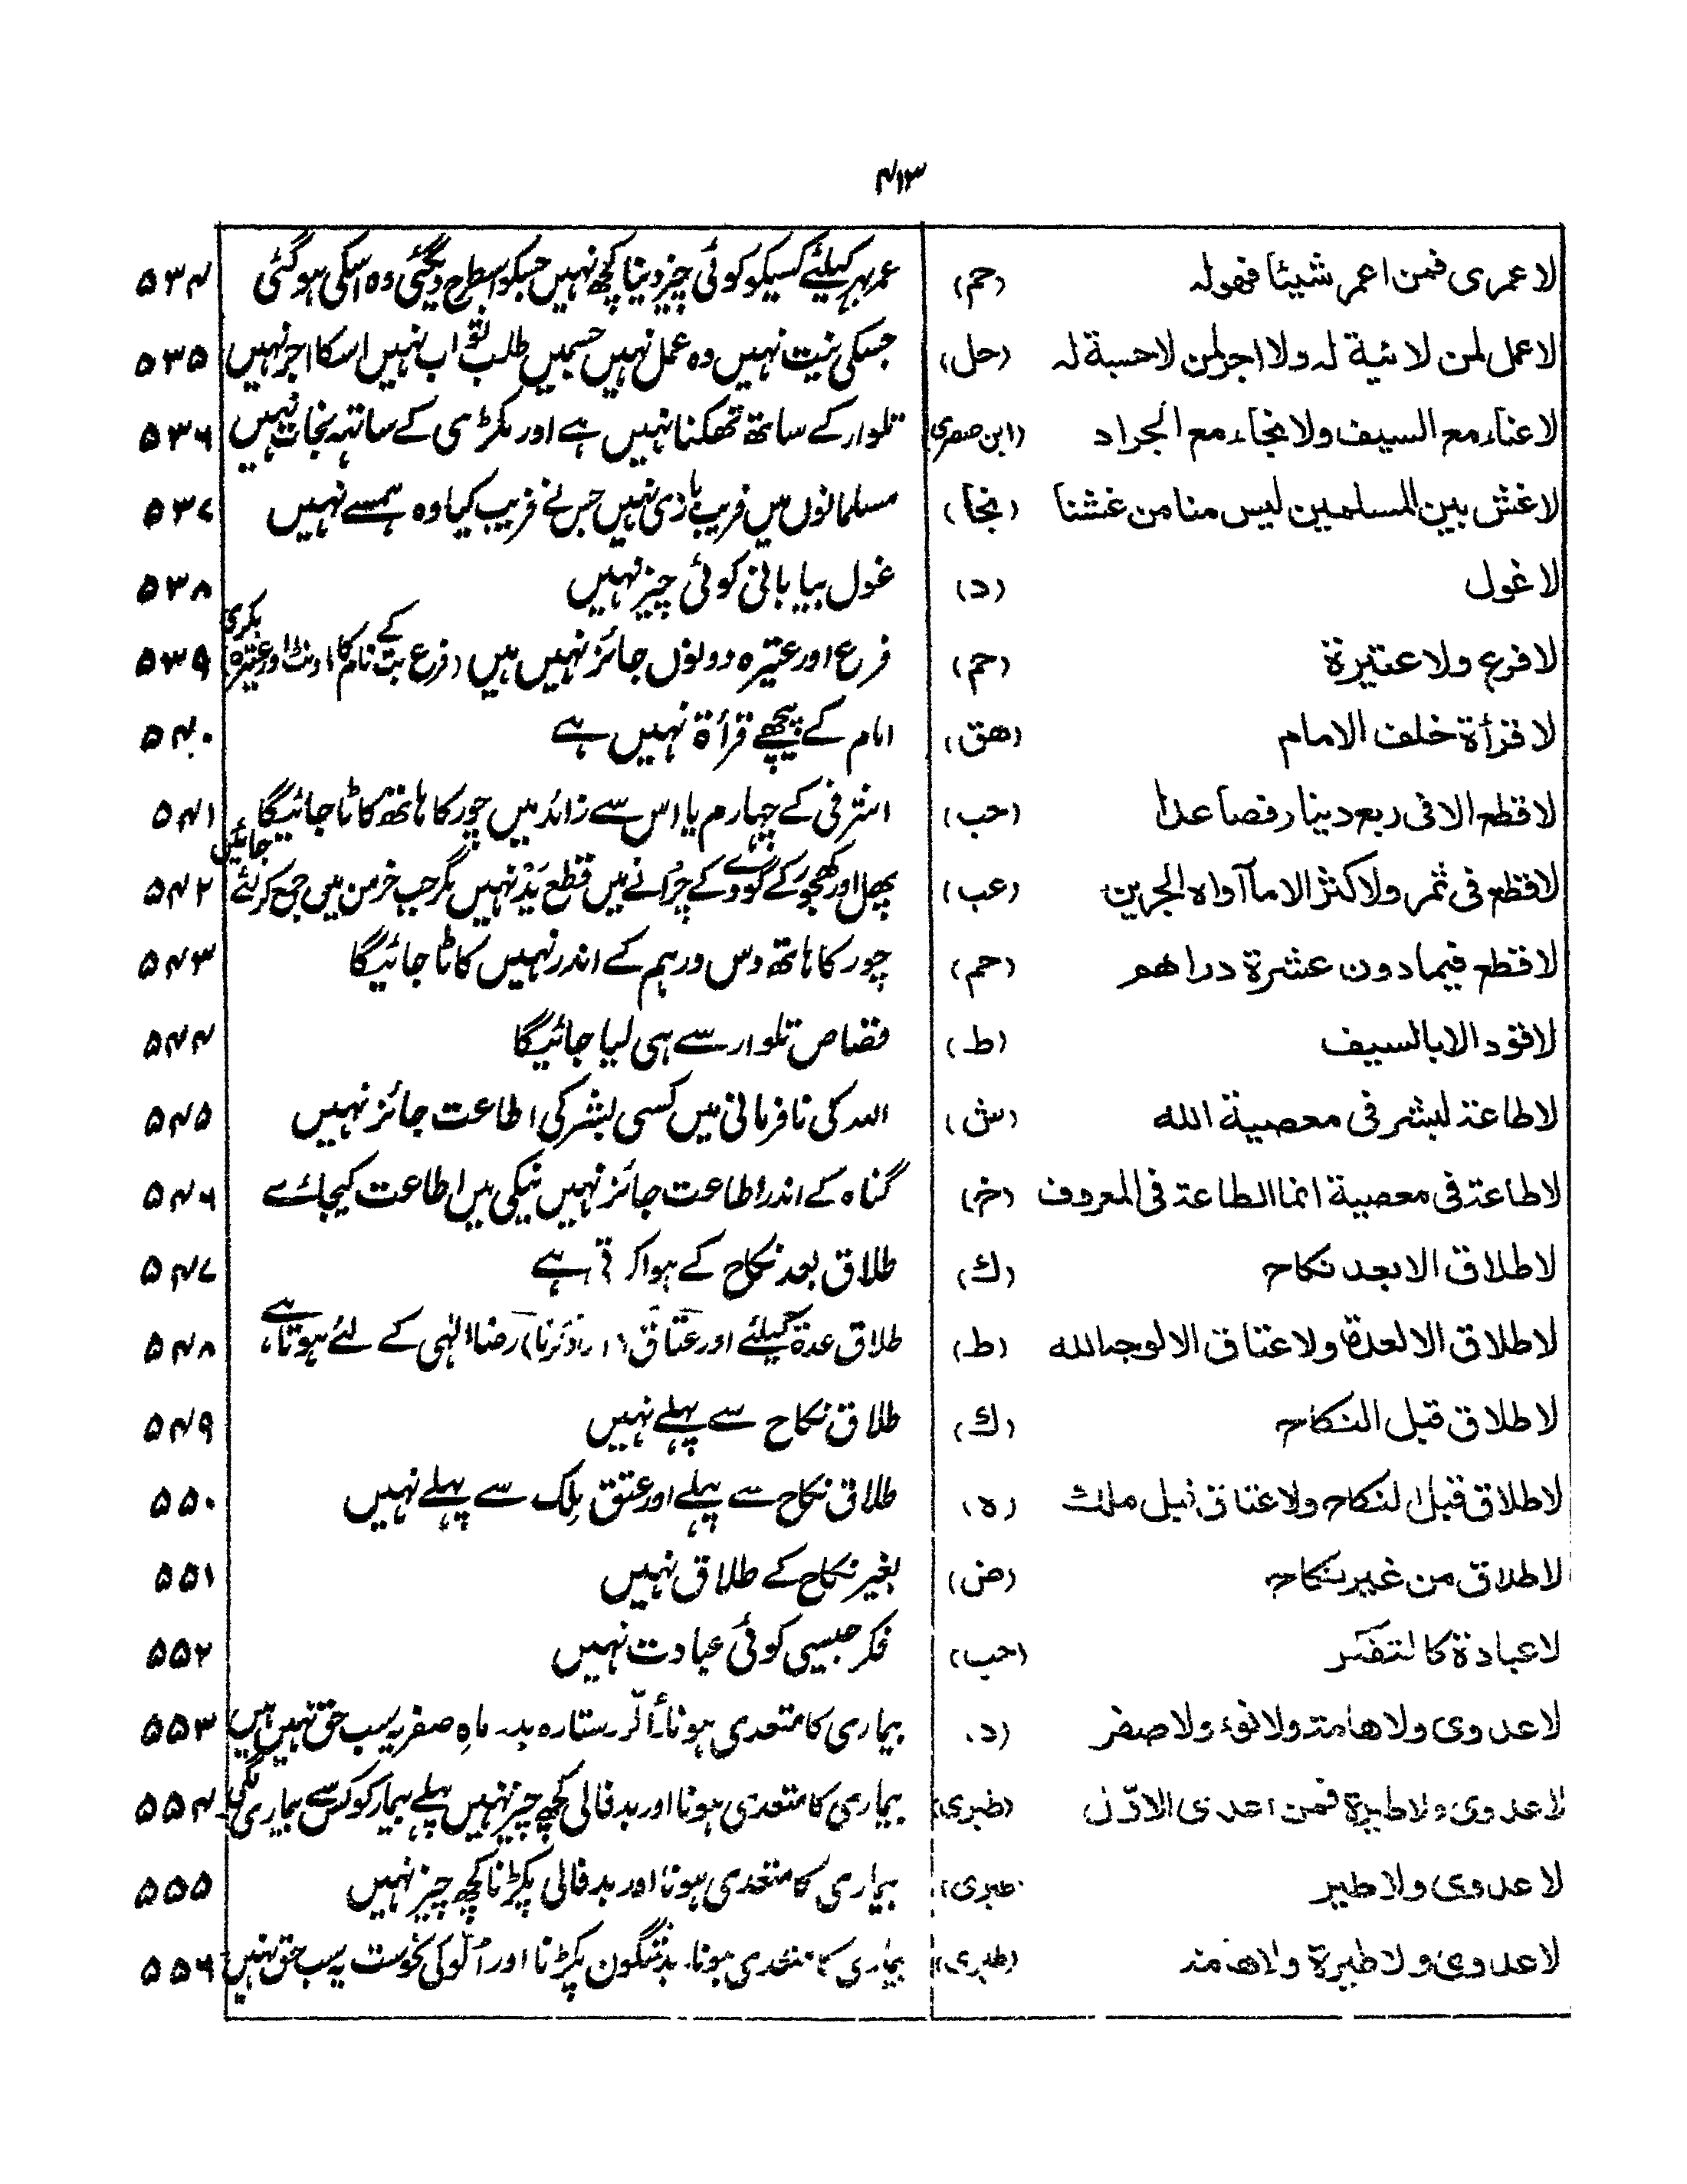 ۴۱۳
لا عمری فمن اعمر شیئا فهوله (حم) عمر بہر کیلئے کسیکو کوئی چیز دینا کچھ نہیں جسکو اسطرح دیگئی وہ اسکی ہو گئی ۵۳۴
لا عمل لمن لا نیة له ولا اجر لمن لا حسبة له (حل) جسکی نیت نہیں وہ عمل نہیں جسمیں طلب ثواب نہیں اسکا اجر نہیں ۵۳۵
لا غناء مع السیف ولا نجاء مع الجراد (ابن صصری) تلوار کے ساتھ تھکنا نہیں ہے اور مکڑی کے ساتہہ نجات نہیں ۵۳۶
لا غش بین المسلمین لیس منا من غشنا (نجا) مسلمانوں میں فریب بازی نہیں جس نے فریب کیا وہ ہمسے نہیں ۵۳۷
لا غول (د) غول بیابانی کوئی چیز نہیں ۵۳۸
لا فرع ولا عتیرة (حم) فرع اور عتیرہ دونوں جائز نہیں ہیں (فرع بت کے نام کا اونٹ اور عتیرہ بکری ۵۳۹
لا قرأة خلف الامام (هق) امام کے پیچھے قرأة نہیں ہے ۵۴۰
لا قطع الا فی ربع دینار فصاعدا (حب) اشرفی کے چہارم یا اس سے زائد میں چور کا ہاتھ کاٹا جائیگا ۵۴۱
لا قطع فی ثمر ولا کثر الا ما آواه الجرین (عب) پھل اور کھجور کے گودے کے چرانے میں قطع ید نہیں مگر جب خرمن میں جمع کر لئے جائیں ۵۴۲
لا قطع فیما دون عشرة دراهم (حم) چور کا ہاتھ دس درہم کے اندر نہیں کاٹا جائیگا ۵۴۳
لا قود الا بالسیف (ط) قصاص تلوار سے ہی لیا جائیگا ۵۴۴
لا طاعة لبشر فی معصیة الله (ش) اللہ کی نافرمانی میں کسی بشر کی اطاعت جائز نہیں ۵۴۵
لا طاعة فی معصیة انما الطاعة فی المعروف (خ) گناہ کے اندر اطاعت جائز نہیں نیکی میں اطاعت کیجائے ۵۴۶
لا طلاق الا بعد نکاح (ك) طلاق بعد نکاح کے ہوا کرتی ہے ۵۴۷
لا طلاق الا لعدة ولا عتاق الا لوجه الله (ط) طلاق عدة کیلئے اور عتاق (آزاد کرنا) رضاء الٰہی کے لئے ہوتا ہے ۵۴۸
لا طلاق قبل النکاح (ك) طلاق نکاح سے پہلے نہیں ۵۴۹
لا طلاق قبل النکاح ولا عتاق قبل ملك (ه) طلاق نکاح سے پہلے اور عتق مِلک سے پہلے نہیں ۵۵۰
لا طلاق من غیر نکاح (ض) بغیر نکاح کے طلاق نہیں ۵۵۱
لا عبادة کالتفکر (حب) فکر جیسی کوئی عبادت نہیں ۵۵۲
لا عدوی ولا هامة ولا نوء ولا صفر (د) بیماری کا متعدی ہونا۔ الّر ستارہ بد۔ ماہِ صفر یہ سب حق نہیں ہیں ۵۵۳
لا عدوی ولا طیرة فمن اعدی الاوّل (طبری) بیماری کا متعدی ہونا اور بد فالی کچھ چیز نہیں پہلے بیمار کو کس سے بیماری لگی ۵۵۴
لا عدوی ولا طیر (طبری) بیماری کا متعدی ہونا اور بدفالی پکڑنا کچھ چیز نہیں ۵۵۵
لا عدوی ولا طیرة ولا هامة (طبری) بیماری کا متعدی ہونا۔ بدشگون پکڑنا اور اُلّو کی نحوست یہ سب حق نہیں ۵۵۶